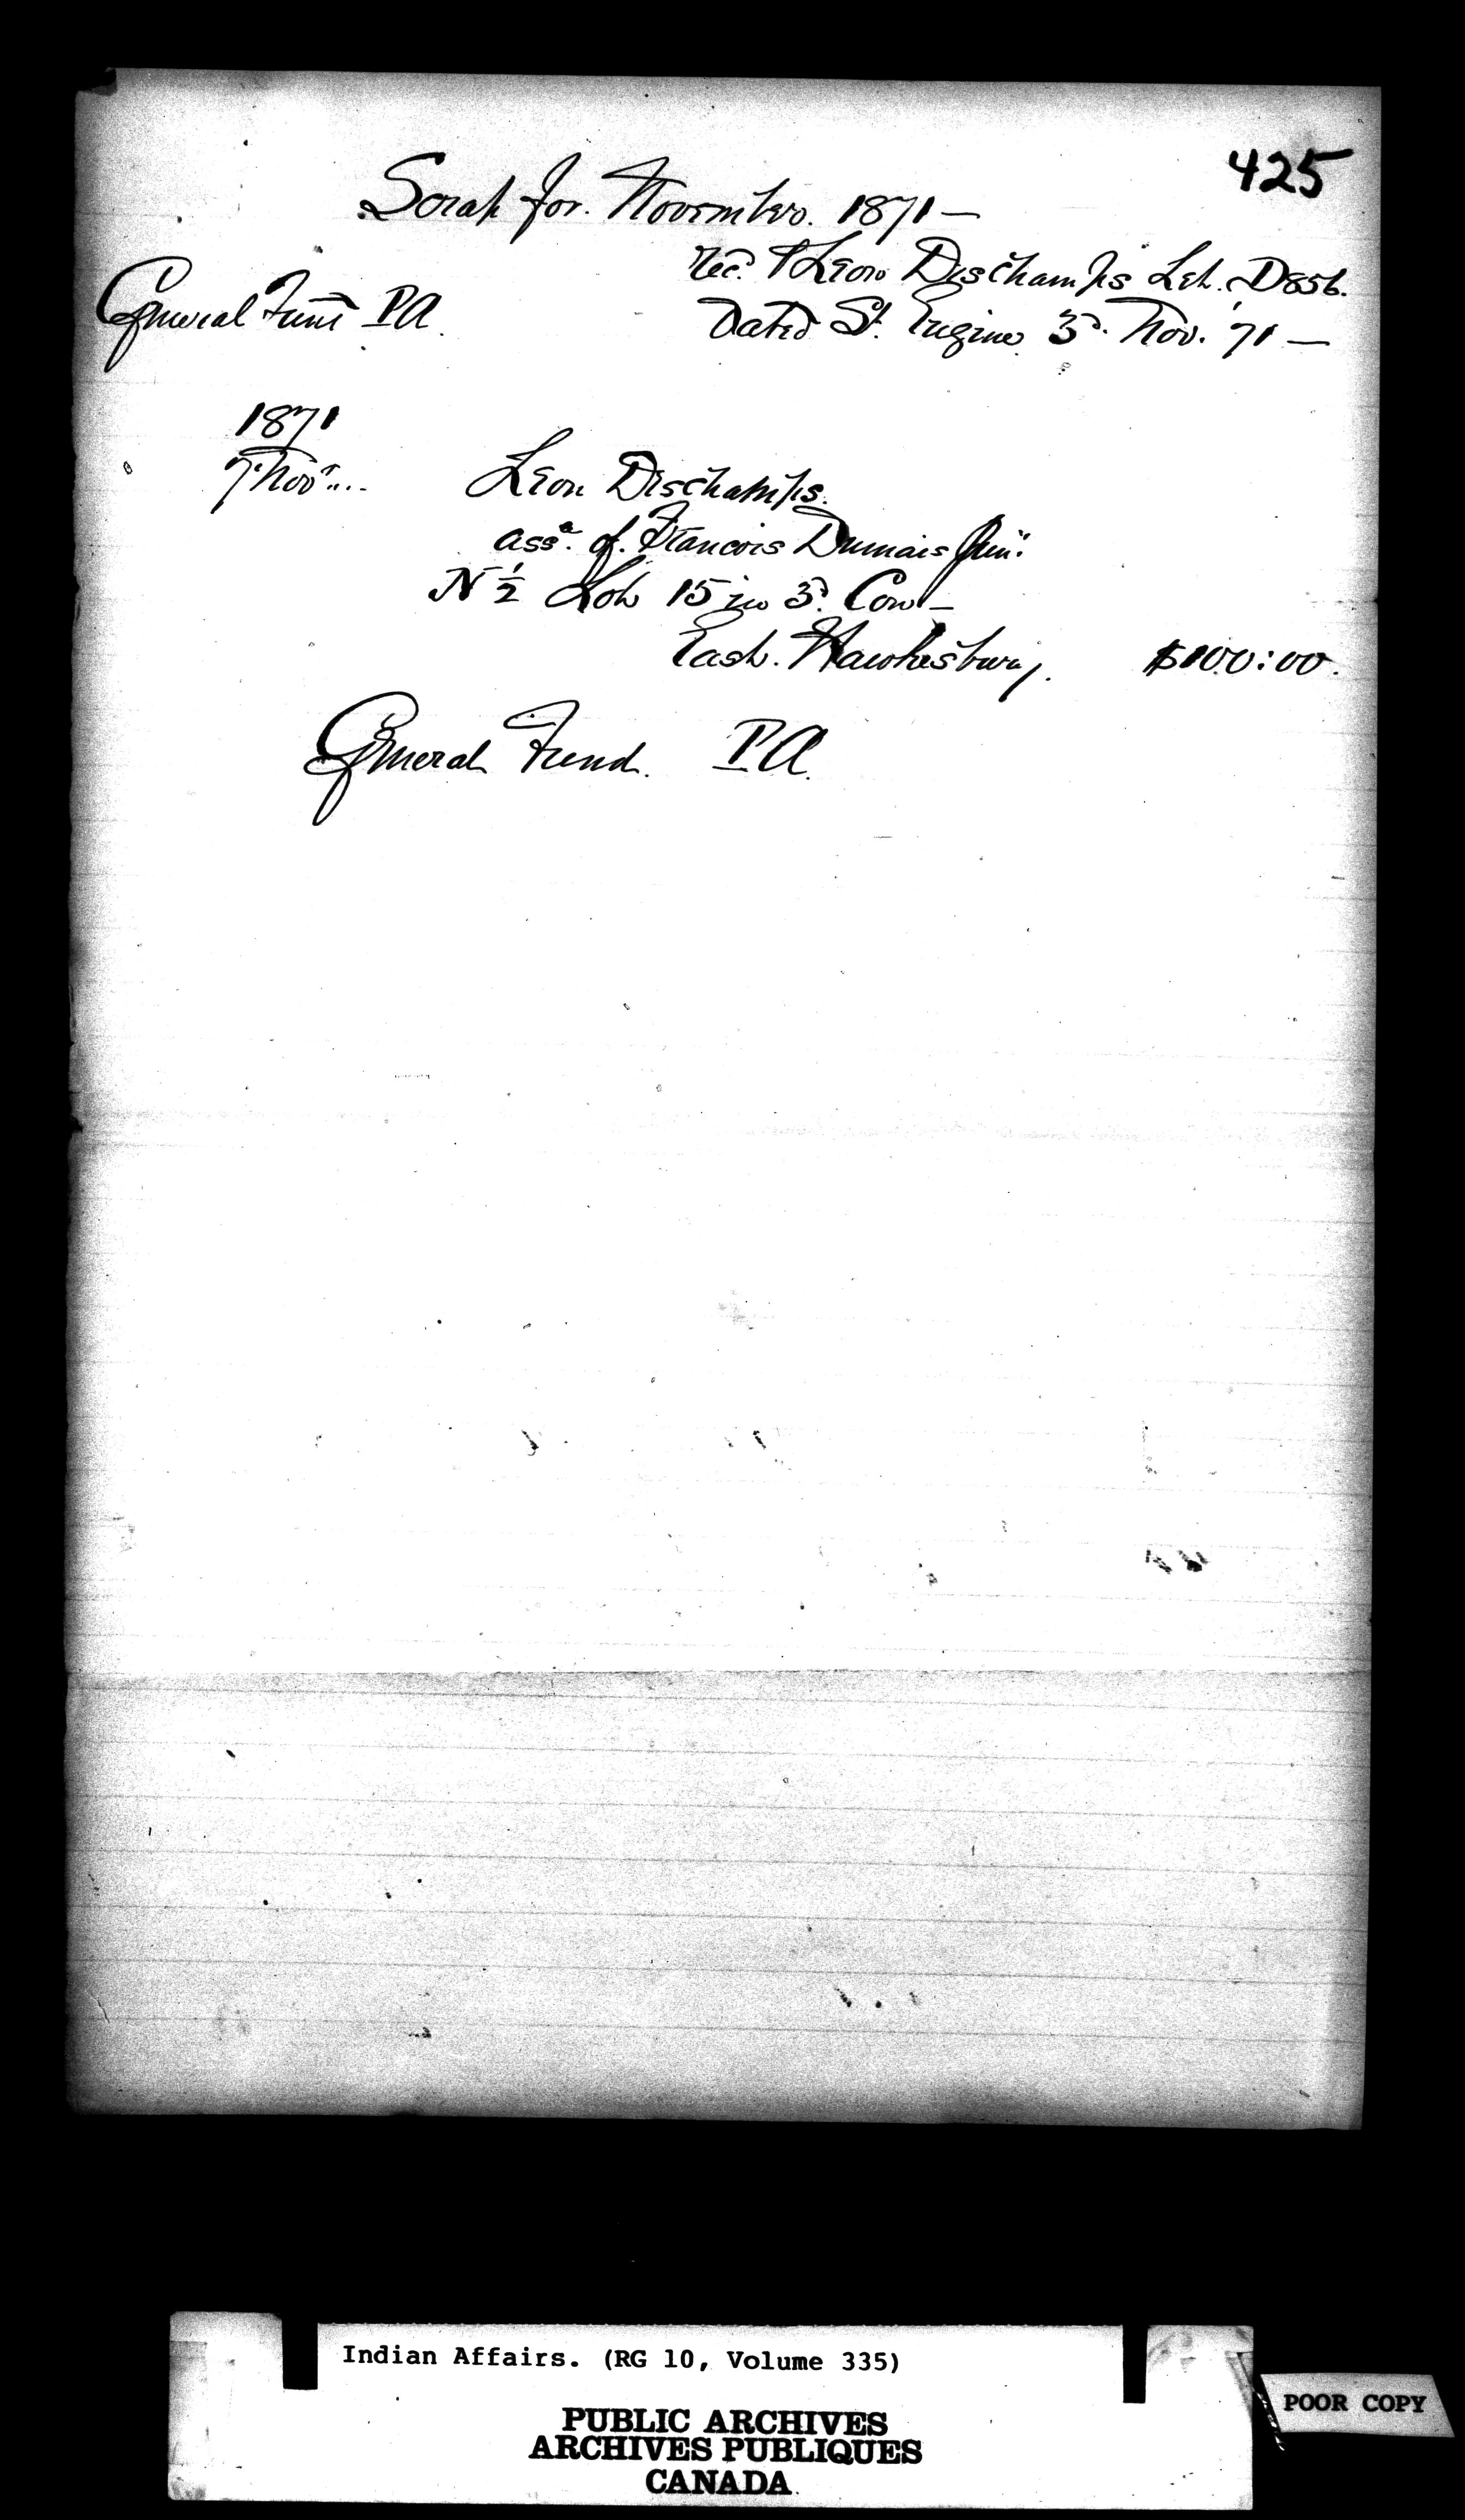 425
Scrap for. November. 1871 —
Rec. Leon Deschamps Let. D856.
General Fund PA
Dated St. Eugine 3d. Nov. '71 —
1871
7 Novr...
Leon Deschamps.
assee. of. Francois Dumais Junr.
N ½ Lot 15 in 3d. Con —
East. Hawkesbury. $100:00.
General Fund. PA.
Indian Affairs. (RG 10, Volume 335)
PUBLIC ARCHIVES
ARCHIVES PUBLIQUES
CANADA
POOR COPY